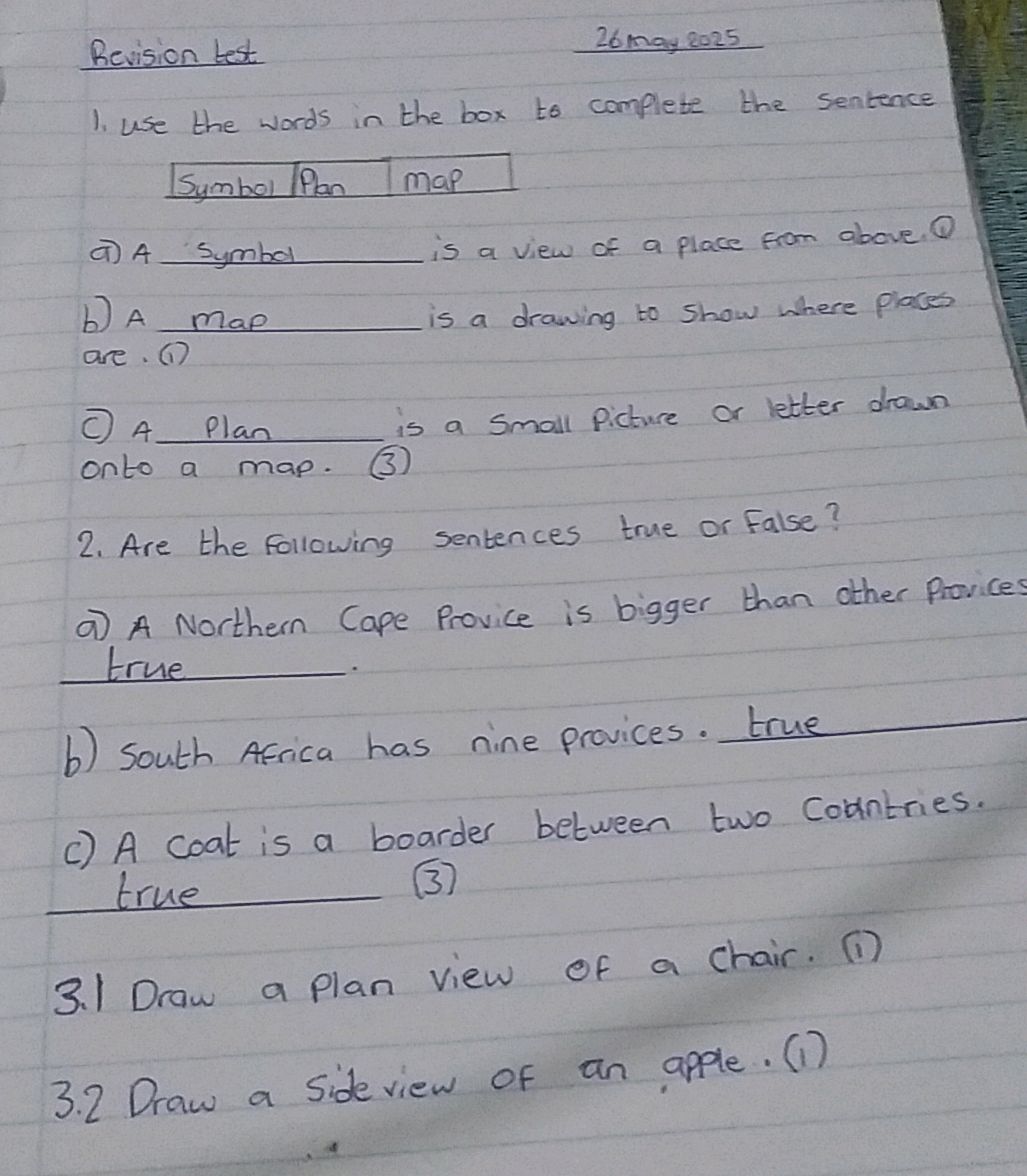 Revision test 26 may 2025
1. use the words in the box to complete the sentence
Symbol Plan map
a) A Symbol is a view of a place from above. (1)
b) A map is a drawing to show where places
are. (1)
c) A Plan is a small picture or letter drawn
onto a map. (3)
2. Are the following sentences true or false?
a) A Northern Cape Provice is bigger than other Provices
true.
b) South Africa has nine provices. true
c) A coat is a boarder between two Countries.
true (3)
3.1 Draw a plan view of a chair. (1)
3.2 Draw a side view of an apple. (1)